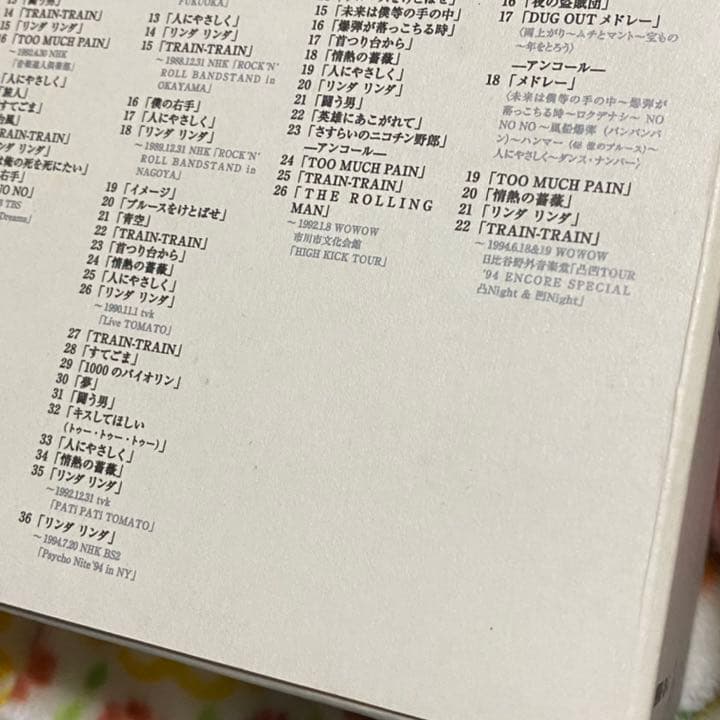 14「TRAIN-TRAIN」
15「リンダ リンダ」
16「TOO MUCH PAIN」
～1992.4.30 NHK
「人にやさしく」
「旅人」
「すてごま」
「TRAIN-TRAIN」
は俺の死を死にたい」
右手」
NO NO」
TBS
Dreams」
FUKUOKA」
13「人にやさしく」
14「リンダ リンダ」
15「TRAIN-TRAIN」
～1988.12.31 NHK「ROCK'N'
ROLL BANDSTAND in
OKAYAMA」
16「僕の右手」
17「人にやさしく」
18「リンダ リンダ」
～1989.12.31 NHK「ROCK'N'
ROLL BANDSTAND in
NAGOYA」
19「イメージ」
20「ブルースをけとばせ」
21「青空」
22「TRAIN-TRAIN」
23「首つり台から」
24「情熱の薔薇」
25「人にやさしく」
26「リンダ リンダ」
～1990.11.1 tvk
「Live TOMATO」
27「TRAIN-TRAIN」
28「すてごま」
29「1000のバイオリン」
30「夢」
31「闘う男」
32「キスしてほしい
（トゥー・トゥー・トゥー）」
33「人にやさしく」
34「情熱の薔薇」
35「リンダ リンダ」
～1992.12.31 tvk
「PATi PATi TOMATO」
36「リンダ リンダ」
～1994.7.20 NHK BS2
「Psycho Nite'94 in NY」
15「未来は僕等の手の中」
16「爆弾が落っこちる時」
17「首つり台から」
18「情熱の薔薇」
19「人にやさしく」
20「リンダ リンダ」
21「闘う男」
22「英雄にあこがれて」
23「さすらいのニコチン野郎」
―アンコール―
24「TOO MUCH PAIN」
25「TRAIN-TRAIN」
26「THE ROLLING
MAN」
～1992.1.8 WOWOW
市川市文化会館
「HIGH KICK TOUR」
16「夜の盗賊団」
17「DUG OUT メドレー」
〈雨上がり～ムチとマント～宝もの
～年をとろう〉
―アンコール―
18「メドレー」
〈未来は僕等の手の中～爆弾が
落っこちる時～ロクデナシ～ NO
NO NO ～風船爆弾（バンバンバ
ン）～ハンマー（48億のブルース）～
人にやさしく～ダンス・ナンバー〉
19「TOO MUCH PAIN」
20「情熱の薔薇」
21「リンダ リンダ」
22「TRAIN-TRAIN」
～1994.6.18&19 WOWOW
日比谷野外音楽堂「凸凹TOUR
'94 ENCORE SPECIAL
凸Night & 凹Night」